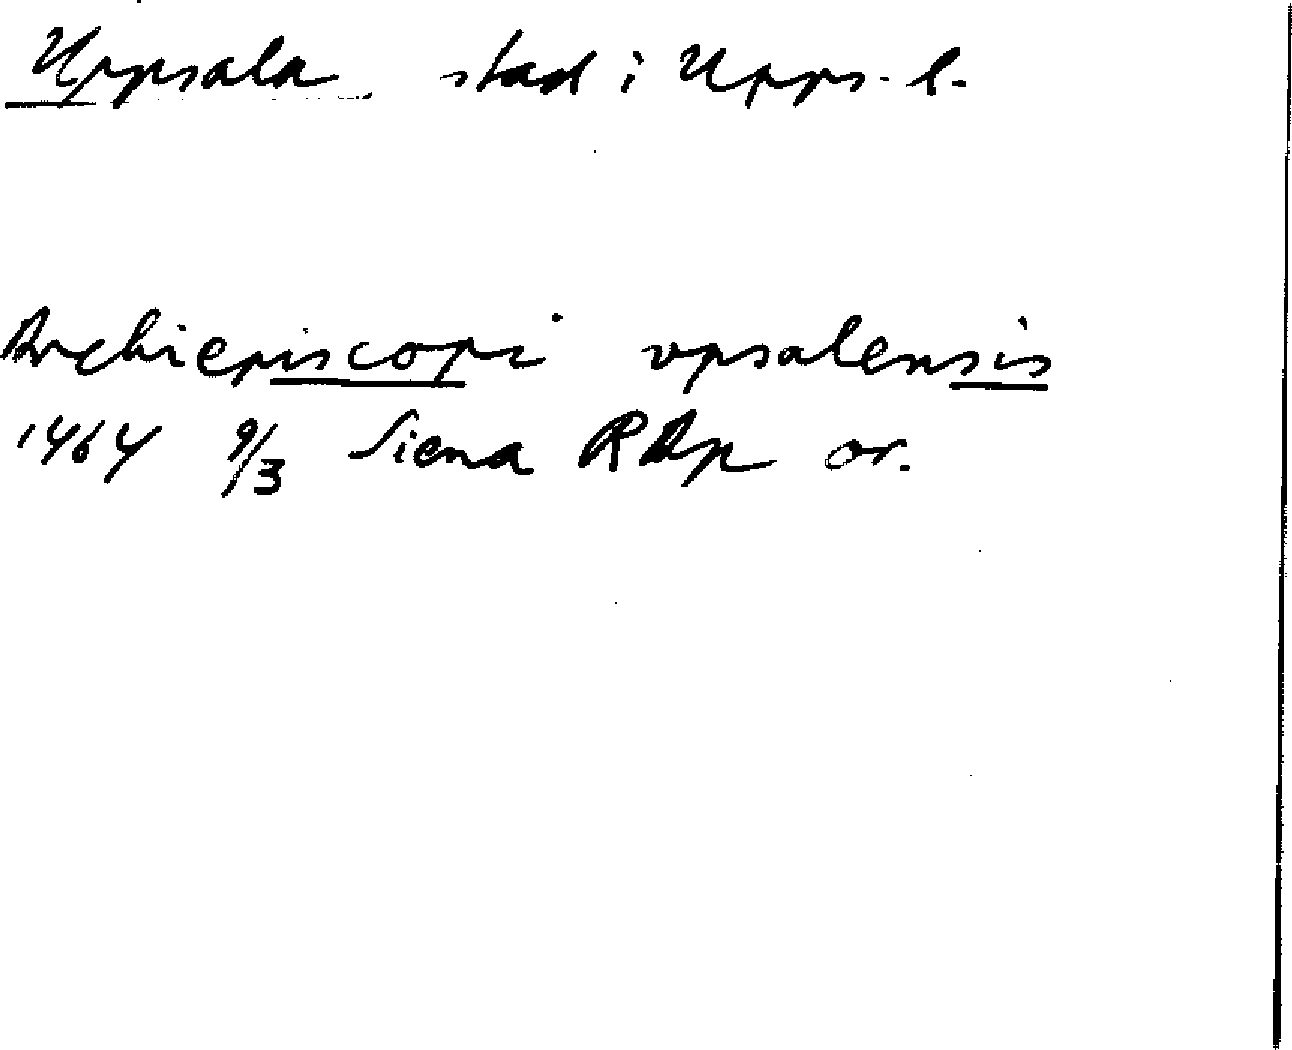 Uppsala stad i Upps. l.
Archiepiscopi vpsalensis
1464 9/3 Siena RAp or.